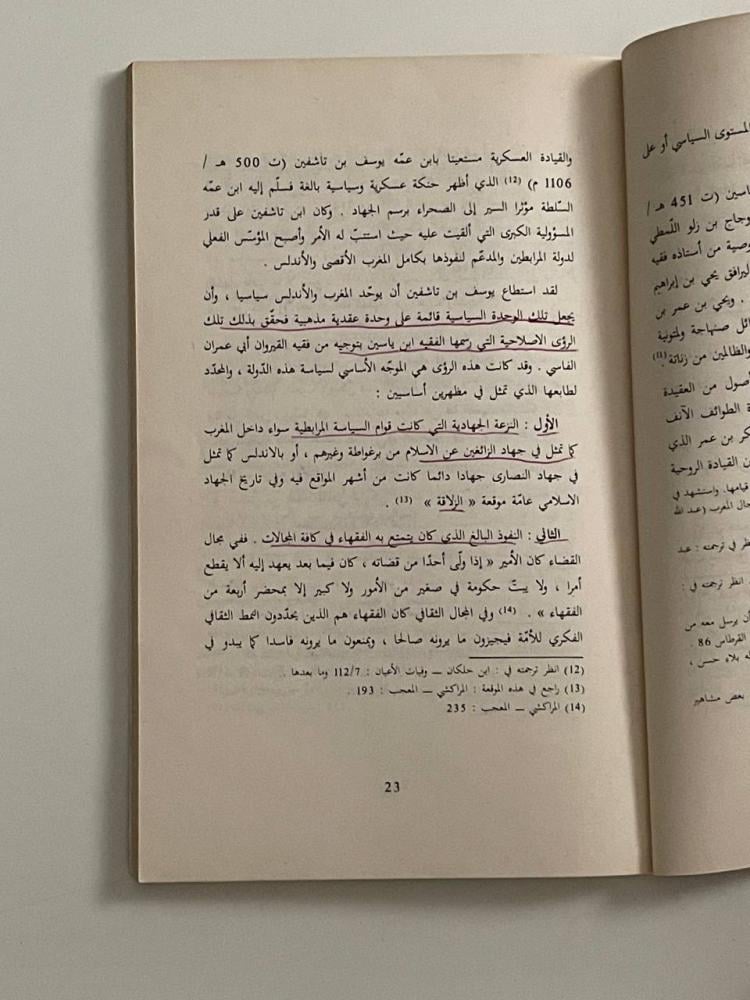 والقيادة العسكرية مستعينا بابن عمّه يوسف بن تاشفين (ت 500 هـ /
1106 م) (12) الذي أظهر حنكة عسكرية وسياسية بالغة فسلّم إليه ابن عمّه
السّلطة مؤثرا السير إلى الصحراء برسم الجهاد . وكان ابن تاشفين على قدر
المسؤولية الكبرى التي ألقيت عليه حيث استتبّ له الأمر وأصبح المؤسّس الفعلي
لدولة المرابطين والمدعّم لنفوذها بكامل المغرب الأقصى والأندلس .
لقد استطاع يوسف بن تاشفين أن يوحّد المغرب والأندلس سياسيا ، وأن
يجعل تلك الوحدة السياسية قائمة على وحدة عقدية مذهبية فحقّق بذلك تلك
الرؤى الاصلاحية التي رسمها الفقيه ابن ياسين بتوجيه من فقيه القيروان أبي عمران
الفاسي . وقد كانت هذه الرؤى هي الموجّه الأساسي لسياسة هذه الدّولة ، والمحدّد
لطابعها الذي تمثل في مظهرين أساسيين :
الأول : النزعة الجهادية التي كانت قوام السياسة المرابطية سواء داخل المغرب
كما تمثل في جهاد الزائغين عن الاسلام من برغواطة وغيرهم ، أو بالاندلس كما تمثل
في جهاد النصارى جهادا دائما كانت من أشهر المواقع فيه وفي تاريخ الجهاد
الاسلامي عامّة موقعة « الزلاقة » (13) .
الثاني : النفوذ البالغ الذي كان يتمتع به الفقهاء في كافة المجالات . ففي مجال
القضاء كان الأمير « إذا ولّى أحدًا من قضاته ، كان فيما بعد يعهد إليه ألا يقطع
أمرا ، ولا يبتّ حكومة في صغير من الأمور ولا كبير إلا بمحضر أربعة من
الفقهاء » . (14) وفي المجال الثقافي كان الفقهاء هم الذين يحدّدون النمط الثقافي
الفكري للأمّة فيجيزون ما يرونه صالحا ، ويمنعون ما يرونه فاسدا كما يبدو في
(12) انظر ترجمته في : ابن خلكان — وفيات الأعيان : 112/7 وما بعدها .
(13) راجع في هذه الموقعة : المراكشي — المعجب : 193 .
(14) المراكشي — المعجب : 235
23
المستوى السياسي أو على
ياسين (ت 451 هـ /
وجاج بن زلو اللّمطي
وصية من أستاذه فقيه
ليرافق يحي بن إبراهيم
. ويحي بن عمر بن
ائل صنهاجة ولمتونة
والظالمين من زناتة . (11)
أصول من العقيدة
ة الطوائف الآنف
كر بن عمر الذي
ن القيادة الروحية
قيامها. واستشهد في
حال المغرب (عبد الله
ظر في ترجمته : عبد
انظر ترجمته في :
أن يرسل معه من
القرطاس 86 .
له بلاء حسن ،
بعض مشاهير